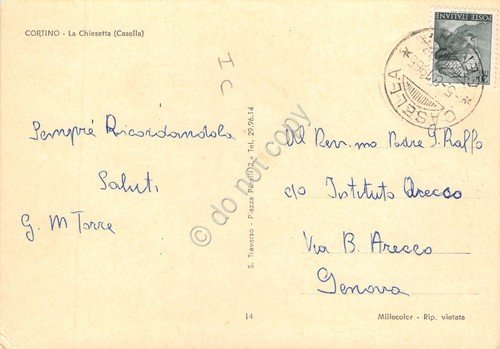 CORTINO - La Chiesetta (Casella)
I C
Sempre Ricordandola
Saluti
G. M Torre
S. Traverso - Piazza 2 - Tel. 29.96.14
14
POSTE ITALIANE
CASELLA
Al Rev. mo Padre G. Raffo
c/o Istituto Arecco
Via B. Arecco
Genova
Millecolor - Rip. vietata
© do not copy